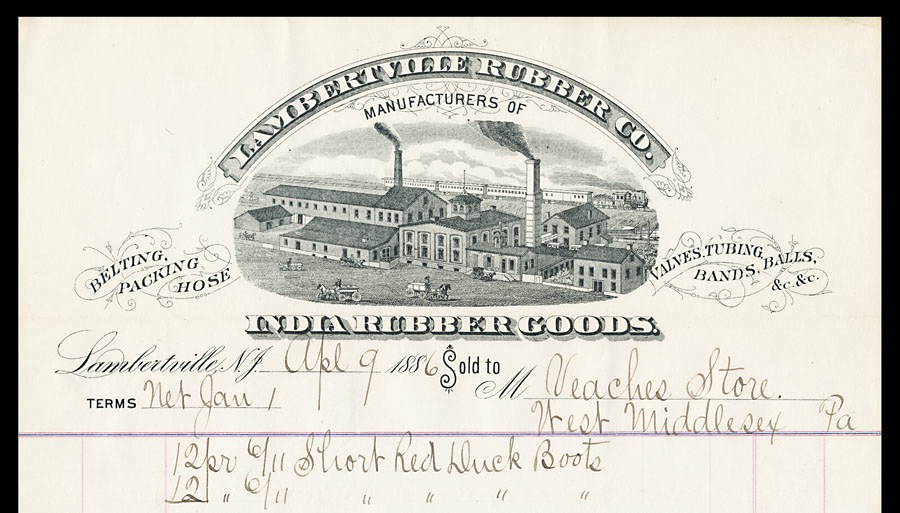 LAMBERTVILLE RUBBER CO.
MANUFACTURERS OF
BELTING,
PACKING
HOSE
VALVES, TUBING, BALLS,
BANDS, &c. &c.
INDIA RUBBER GOODS.
Lambertville, N.J. Apl 9 1886 Sold to
M Veaches Store.
TERMS Net Jan 1
West Middlesex Pa
12 pr 6/11 Short Red Duck Boots
12 " 6/11 " " " "